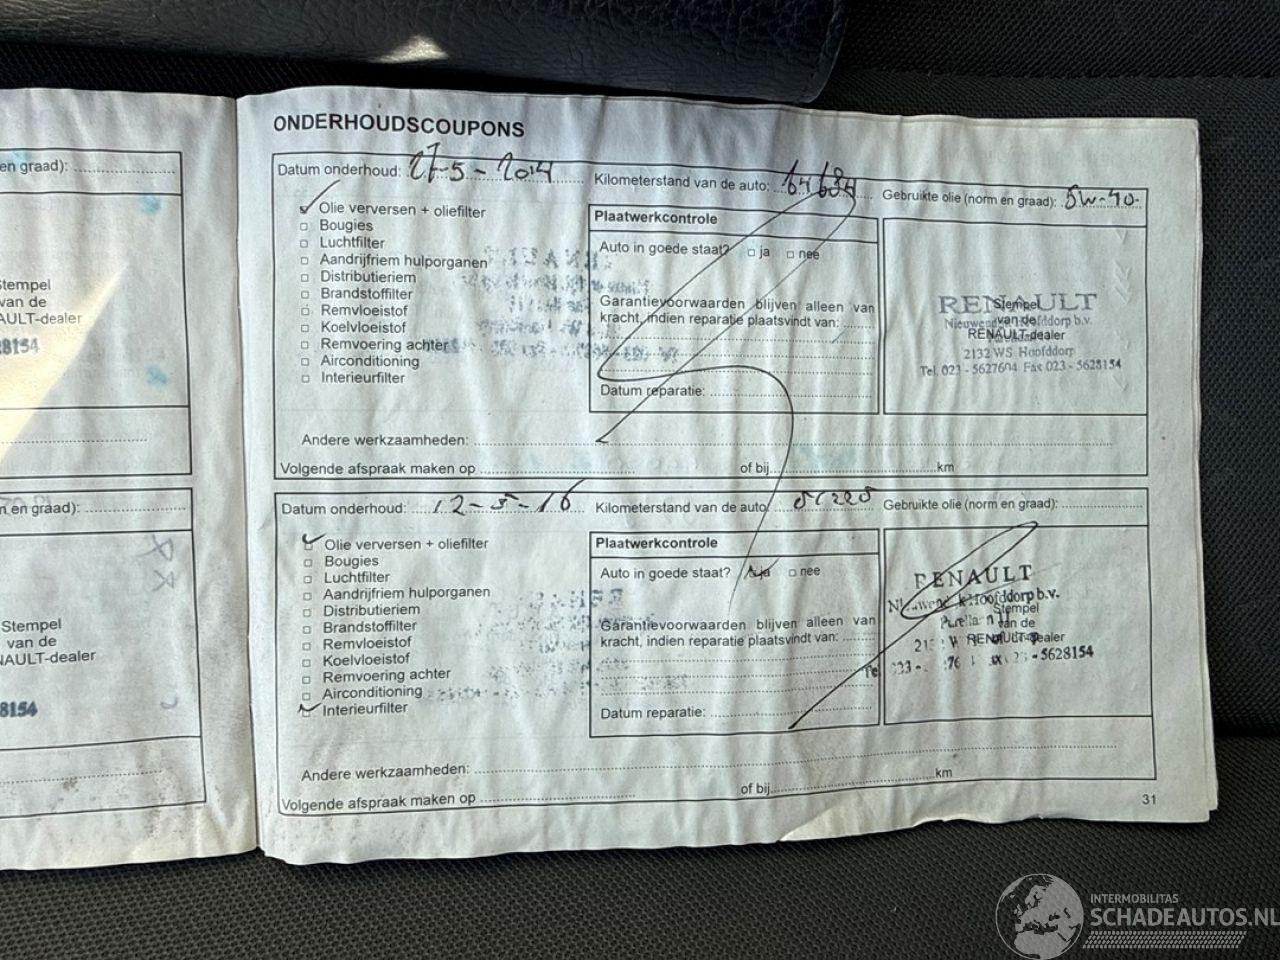 en graad):
Stempel
van de
AULT-dealer
8154
n en graad):
Stempel
van de
NAULT-dealer
8154
ONDERHOUDSCOUPONS
Datum onderhoud: 27-5-2014 Kilometerstand van de auto: Gebruikte olie (norm en graad): 5W-40
Olie verversen + oliefilter
Bougies
Luchtfilter
Aandrijfriem hulporganen
Distributieriem
Brandstoffilter
Remvloeistof
Koelvloeistof
Remvoering achter
Airconditioning
Interieurfilter
Plaatwerkcontrole
Auto in goede staat? ja nee
Garantievoorwaarden blijven alleen van
kracht, indien reparatie plaatsvindt van:
Datum reparatie:
RENAULT
Stempel
Nieuwendijk Hoofddorp b.v.
van de
RENAULT-dealer
2132 WS Hoofddorp
Tel. 023 - 5627604 Fax 023 - 5628154
Andere werkzaamheden:
Volgende afspraak maken op of bij km
Datum onderhoud: 12-5-16 Kilometerstand van de auto: Gebruikte olie (norm en graad):
Olie verversen + oliefilter
Bougies
Luchtfilter
Aandrijfriem hulporganen
Distributieriem
Brandstoffilter
Remvloeistof
Koelvloeistof
Remvoering achter
Airconditioning
Interieurfilter
Plaatwerkcontrole
Auto in goede staat? ja nee
Garantievoorwaarden blijven alleen van
kracht, indien reparatie plaatsvindt van:
Datum reparatie:
RENAULT
Hoofddorp b.v.
Stempel
van de
RENAULT-dealer
Tel 023 - 5628154
Andere werkzaamheden:
Volgende afspraak maken op of bij km
31
INTERMOBILITAS
SCHADEAUTOS.NL